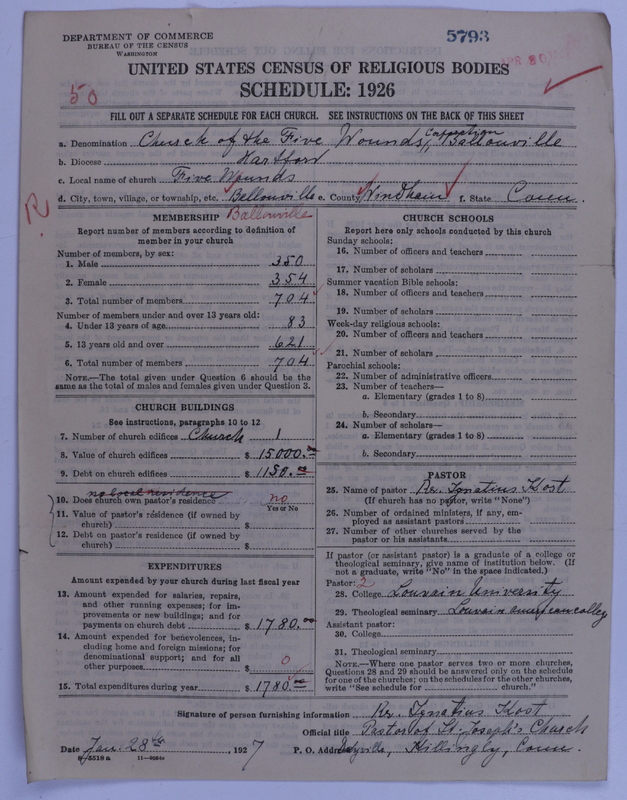 DEPARTMENT OF COMMERCE
BUREAU OF THE CENSUS
WASHINGTON
5793
APR 80
UNITED STATES CENSUS OF RELIGIOUS BODIES
SCHEDULE: 1926
50
FILL OUT A SEPARATE SCHEDULE FOR EACH CHURCH. SEE INSTRUCTIONS ON THE BACK OF THIS SHEET
a. Denomination Church of the Five Wounds, Corporation Ballouville
b. Diocese Hartford
c. Local name of church Five Wounds
d. City, town, village, or township, etc. Ballouville e. County Windham f. State Conn.
R
Ballouville
MEMBERSHIP
Report number of members according to definition of
member in your church
Number of members, by sex:
1. Male 350
2. Female 354
3. Total number of members 704
Number of members under and over 13 years old:
4. Under 13 years of age 83
5. 13 years old and over 621
6. Total number of members 704
NOTE.—The total given under Question 6 should be the
same as the total of males and females given under Question 3.
CHURCH BUILDINGS
See instructions, paragraphs 10 to 12
7. Number of church edifices Church 1
8. Value of church edifices $ 15000.00
9. Debt on church edifices $ 1150.00
no local residence
10. Does church own pastor's residence no
Yes or No
11. Value of pastor's residence (if owned by
church) $
12. Debt on pastor's residence (if owned by
church) $
EXPENDITURES
Amount expended by your church during last fiscal year
13. Amount expended for salaries, repairs,
and other running expenses; for im-
provements or new buildings; and for
payments on church debt $ 1780.00
14. Amount expended for benevolences, in-
cluding home and foreign missions; for
denominational support; and for all
other purposes $ 0
15. Total expenditures during year $ 1780.00
CHURCH SCHOOLS
Report here only schools conducted by this church
Sunday schools:
16. Number of officers and teachers
17. Number of scholars
Summer vacation Bible schools:
18. Number of officers and teachers
19. Number of scholars
Week-day religious schools:
20. Number of officers and teachers
21. Number of scholars
Parochial schools:
22. Number of administrative officers
23. Number of teachers—
a. Elementary (grades 1 to 8)
b. Secondary
24. Number of scholars—
a. Elementary (grades 1 to 8)
b. Secondary
PASTOR
25. Name of pastor Rev. Ignatius Kost
(If church has no pastor, write "None")
26. Number of ordained ministers, if any, em-
ployed as assistant pastors
27. Number of other churches served by the
pastor or his assistants
If pastor (or assistant pastor) is a graduate of a college or
theological seminary, give name of institution below. (If
not a graduate, write "No" in the space indicated.)
Pastor: 2
28. College Louvain University
29. Theological seminary Louvain american colleg
Assistant pastor:
30. College
31. Theological seminary
NOTE.—Where one pastor serves two or more churches,
Questions 28 and 29 should be answered only on the schedule
for one of the churches; on the schedules for the other churches,
write "See schedule for church."
Signature of person furnishing information Rev. Ignatius Kost
Official title Pastor of St. Joseph's Church
Date Jan. 28th, 1927 P. O. Address Dayville, Killingly, Conn.
8-5518 a 11-9054